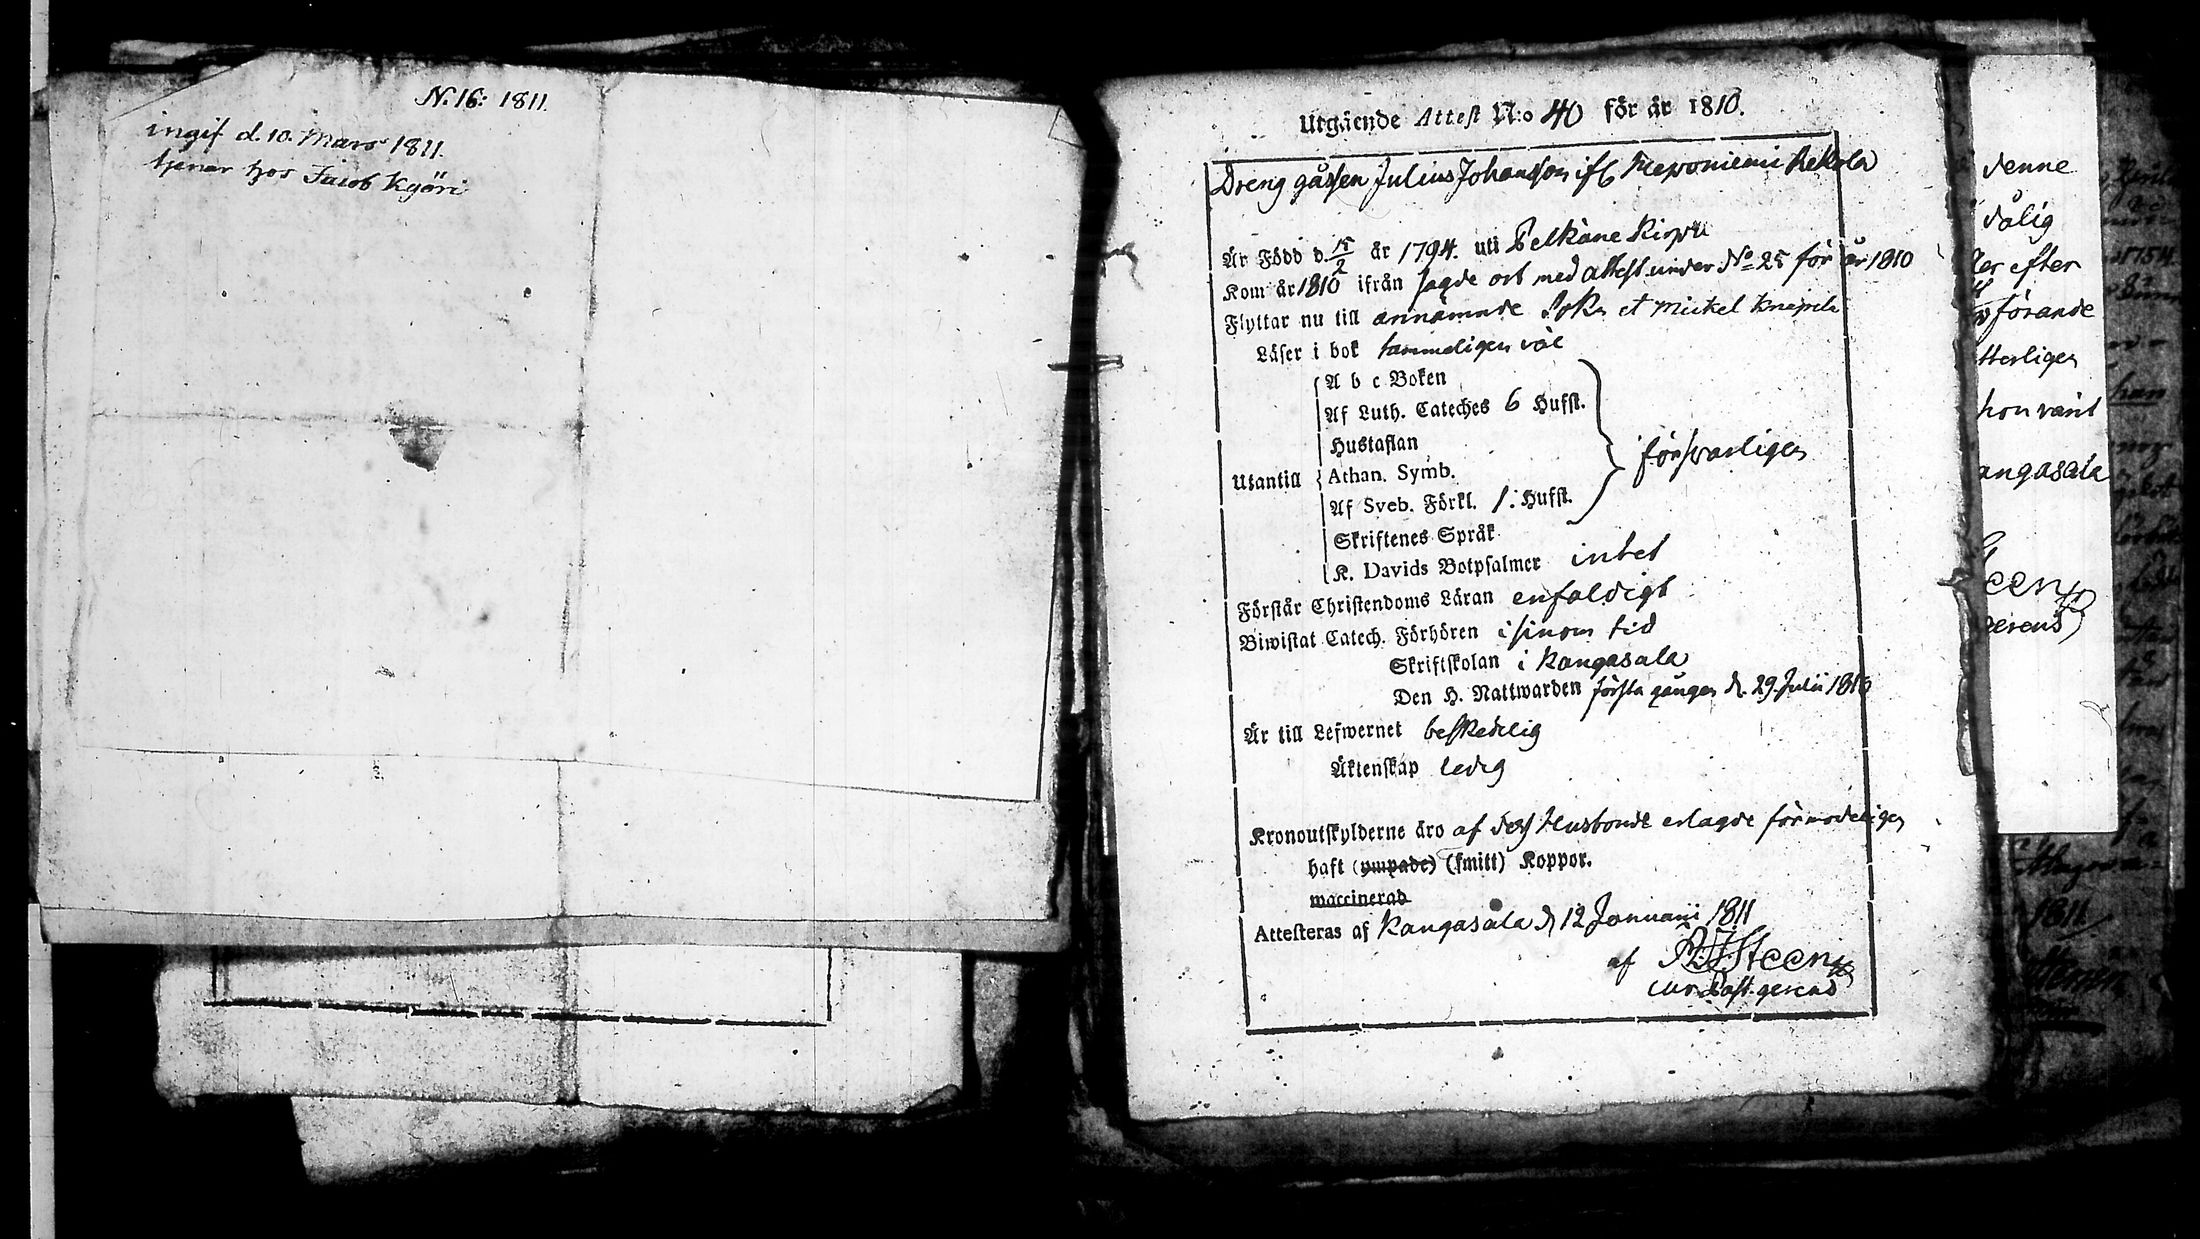 N. 16: 1811.
ingif d. 10. Mars 1811.
tjenar hos Jacob Kyöri
Utgående Attest N:o 40 för år 1810.
Dreng gåssen Julius Johansson ifr Rekola
Är Född d. 15/2 år 1794. uti Pelkäne
Kom år 1810 ifrån sagde ort med attest under No 25 för år 1810
Flyttar nu till ännämnde et Mickel
Läser i bok tammeligen väl
A b c Boken
Af Luth. Cateches 6 Hufst.
Hustaflan
Utantill Athan. Symb. försvarligen
Af Sveb. Förkl. 1. Hufst.
Skriftenes Språk
K. Davids Botpsalmer intet
Förstår Christendoms Läran enfaldigt
Biwistat Catech. Förhören i sinom tid
Skriftskolan i Kangasala
Den H. Nattwarden första gången d. 29. Julii 1810
Är till Lefwernet beskedelig
Äktenskap ledig
Kronoutskylderne äro af dess Husbonde erlagde förmodeligen
haft (ympade) (smitt) Koppor.
waccinerad
Attesteras af Kangasala d 12 Januarii 1811
af Steen
Past. gerens
denne
dålig
efter
förande
tterligen
hon varit
angasala
een
gerens